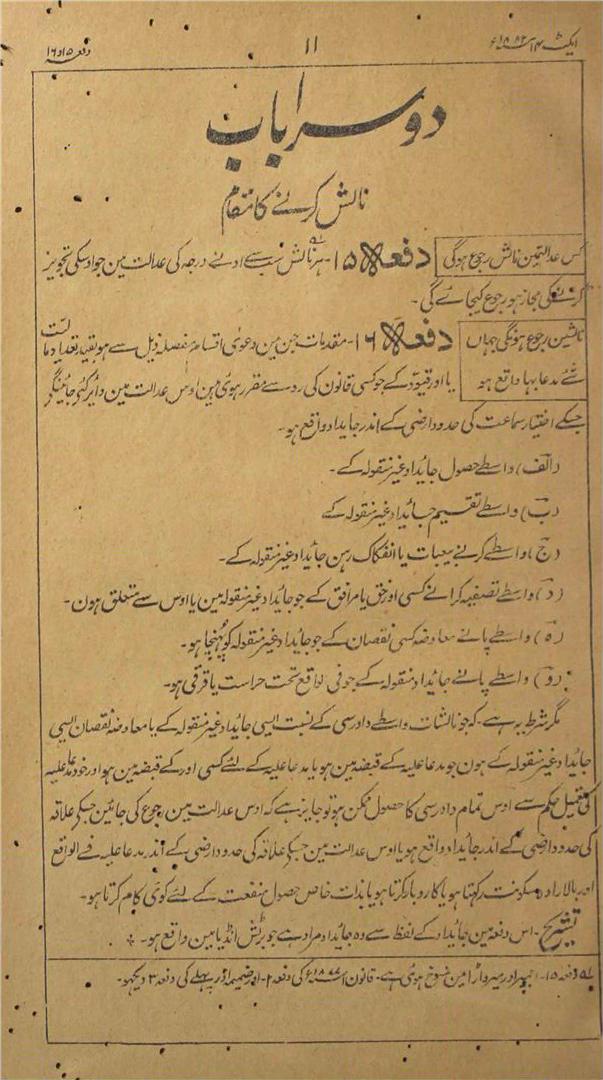 ایکٹ ۱۴ ۱۸۸۲ء
۱۱
دفعہ ۱۵ و ۱۶
دوسرا باب
نالش کرنے کا مقام
کس عدالت مین نالش رجوع ہوگی
دفعہ ۱۵۔ ہر نالش سب سے ادنے درجہ کی عدالت مین جو اوسکی تجویز
کرنیکی مجاز ہو رجوع کیجاے گی۔
نالشین رجوع ہونگی جہاں
شے مدعا بہا واقع ہو
دفعہ ۱۶۔ مقدمات جن مین دعوی اقسام مفصلہ ذیل سے ہو بقید تعداد مالیت
یا اور قیود کے جو کسی قانون کی رو سے مقرر ہوئی ہین اوس عدالت مین دایر کئے جائینگے
جسکے اختیار سماعت کی حدود ارضی کے اندر جایداد واقع ہو۔
(الف) واسطے حصول جائداد غیر منقولہ کے۔
(ب) واسطے تقسیم جائداد غیر منقولہ کے
(ج) واسطے کرنے بیعبات یا انفکاک رہن جائداد غیر منقولہ کے۔
(د) واسطے تصفیہ کرانے کسی اور حق یا مرافق کے جو جائداد غیر منقولہ مین یا اوس سے متعلق ہون۔
(ہ) واسطے پانے معاوضہ کسی نقصان کے جو جائداد غیر منقولہ کو پہنچا ہو۔
(و) واسطے پانے جائداد منقولہ کے جو فی الواقع تحت حراست یا قرقی ہو۔
مگر شرط یہ ہے۔ کہ جو نالشات واسطے دادرسی کے نسبت ایسی جائداد غیر منقولہ کے یا معاوضہ نقصان ایسی
جائداد غیر منقولہ کے ہون جو مدعا علیہ کے قبضہ مین ہو یا مدعا علیہ کے لئے کسی اور کے قبضہ مین ہو اور خود مدعا علیہ
کی تعمیل حکم سے اوس تمام دادرسی کا حصول ممکن ہو تو جایز ہے کہ اوس عدالت مین رجوع کی جائین جسکے علاقہ
کی حدود ارضی کے اندر جائداد واقع ہو یا اوس عدالت مین جسکے علاقہ کی حدود ارضی کے اندر مدعا علیہ فے الواقع
اور بالارادہ سکونت رکھتا ہو یا کاروبار کرتا ہو یا بذات خاص حصول منفعت کے لئے کوئی کام کرتا ہو۔
تشریح۔ اس دفعہ مین جائداد کے لفظ سے وہ جائداد مراد ہے جو برٹش انڈیا مین واقع ہو۔
دفعہ ۱۵۔ اجمیر اور میرواڑا مین منسوخ ہوئی ہے۔ قانون ۱۸۷۷ء کی دفعہ ۲۔ اور ضمیمہ اور پہلے کی دفعہ ۳ دیکھو۔